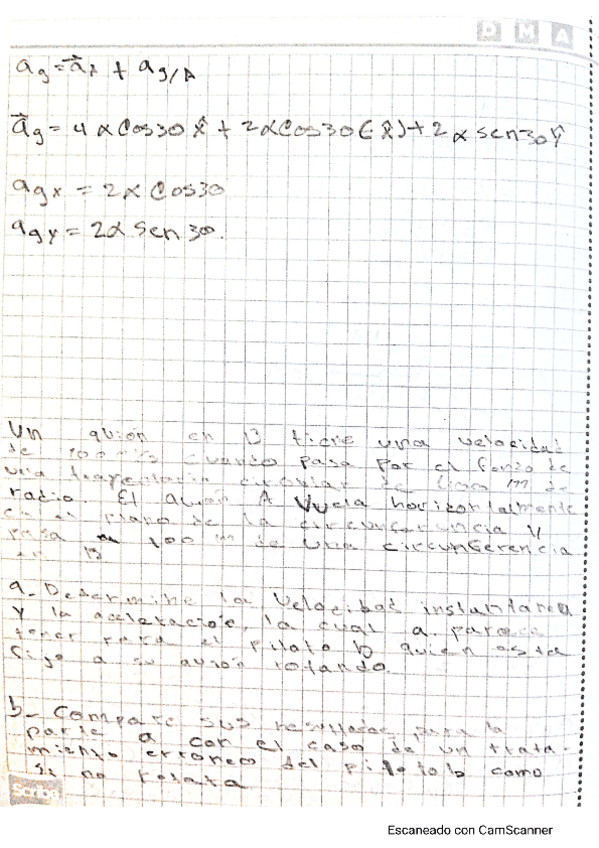 DMA
ag = ax + ag/A
ag = 4 α Cos30 x̂ + 2αCos30(-x̂) + 2 α sen30ŷ
agx = 2α Cos30
agy = 2α Sen 30.
Un avión en B tiene una velocidad
de cuando pasa por el fondo de
una trayectoria circular de m de
radio. El avión A vuela horizontalmente
en el plano de la circunferencia y
pasa 100 m de una circunferencia
en B
a.- Determine la velocidad instantanea
y la aceleración, la cual a parece
tener para el piloto b quien esta
fijo a su avión rotando.
b- Compare sus resultados para la
parte a con el caso de un trata-
miento erroneo del piloto b como
si no rotara
Scribe
Escaneado con CamScanner